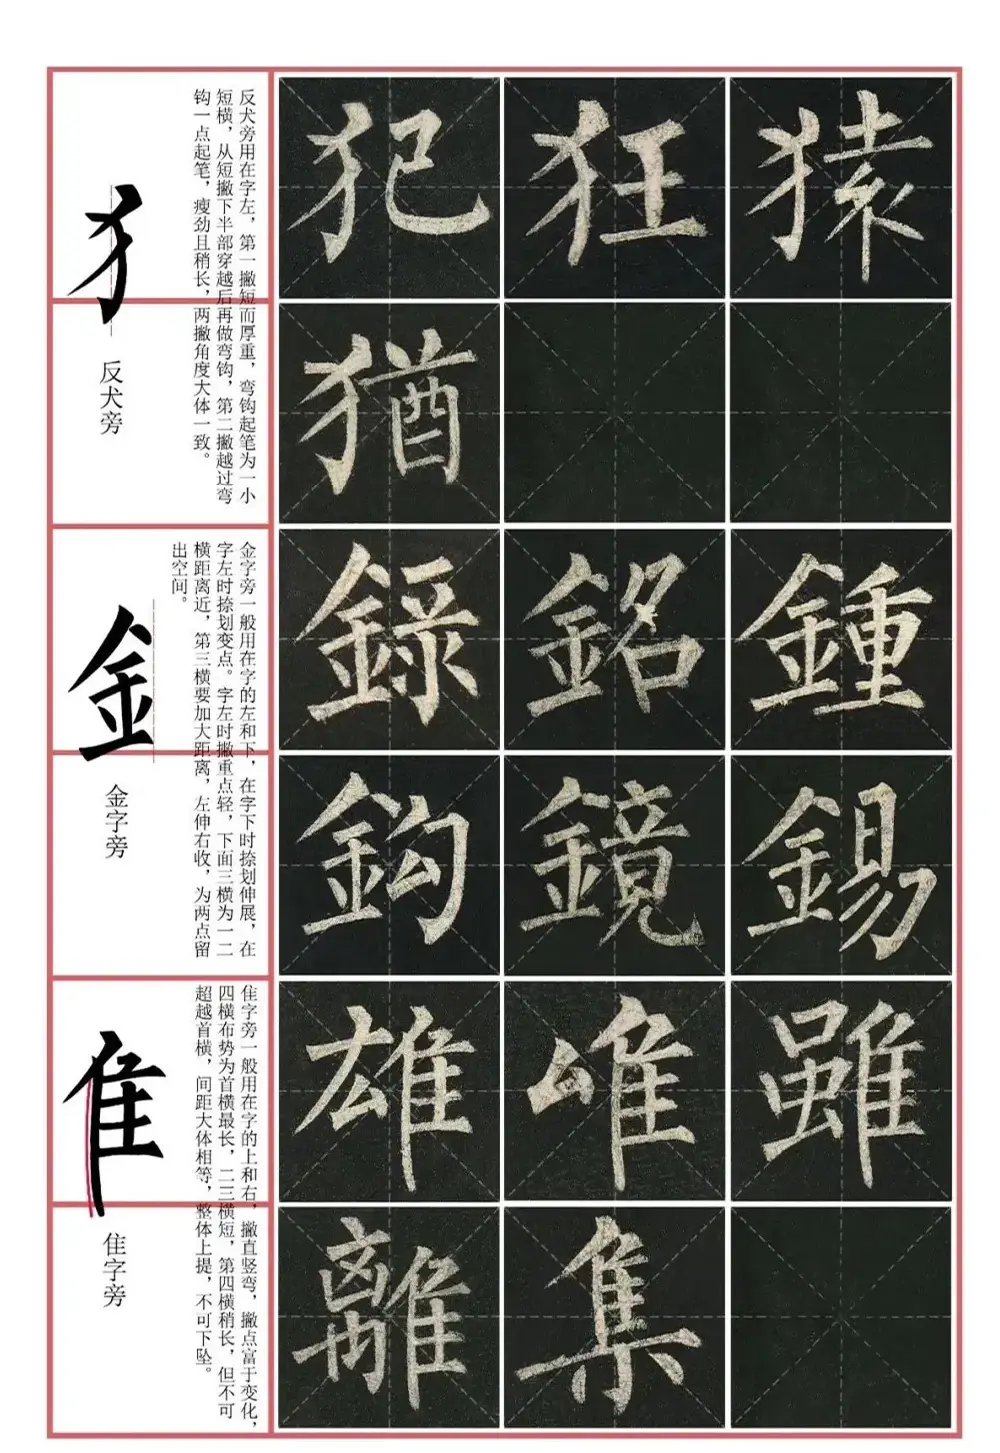 反犬旁用在字左，第一撇短而厚重，弯钩起笔为一小
短横，从短撇下半部穿越后再做弯钩，第二撇越过弯
钩一点起笔，瘦劲且稍长，两撇角度大体一致。
犭
反犬旁
犯
狂
猿
猶
金字旁一般用在字的左和下，在字下时捺划伸展，在
字左时捺划变点。字左时撇重点轻，下面三横为一二
横距离近，第三横要加大距离，左伸右收，为两点留
出空间。
金
金字旁
録
銘
鍾
鈎
鏡
錫
隹字旁一般用在字的上和右，撇直竖弯，撇点富于变化，
四横布势为首横最长，二三横短，第四横稍长，但不可
超越首横，间距大体相等，整体上提，不可下坠。
隹
隹字旁
雄
唯
雖
離
集